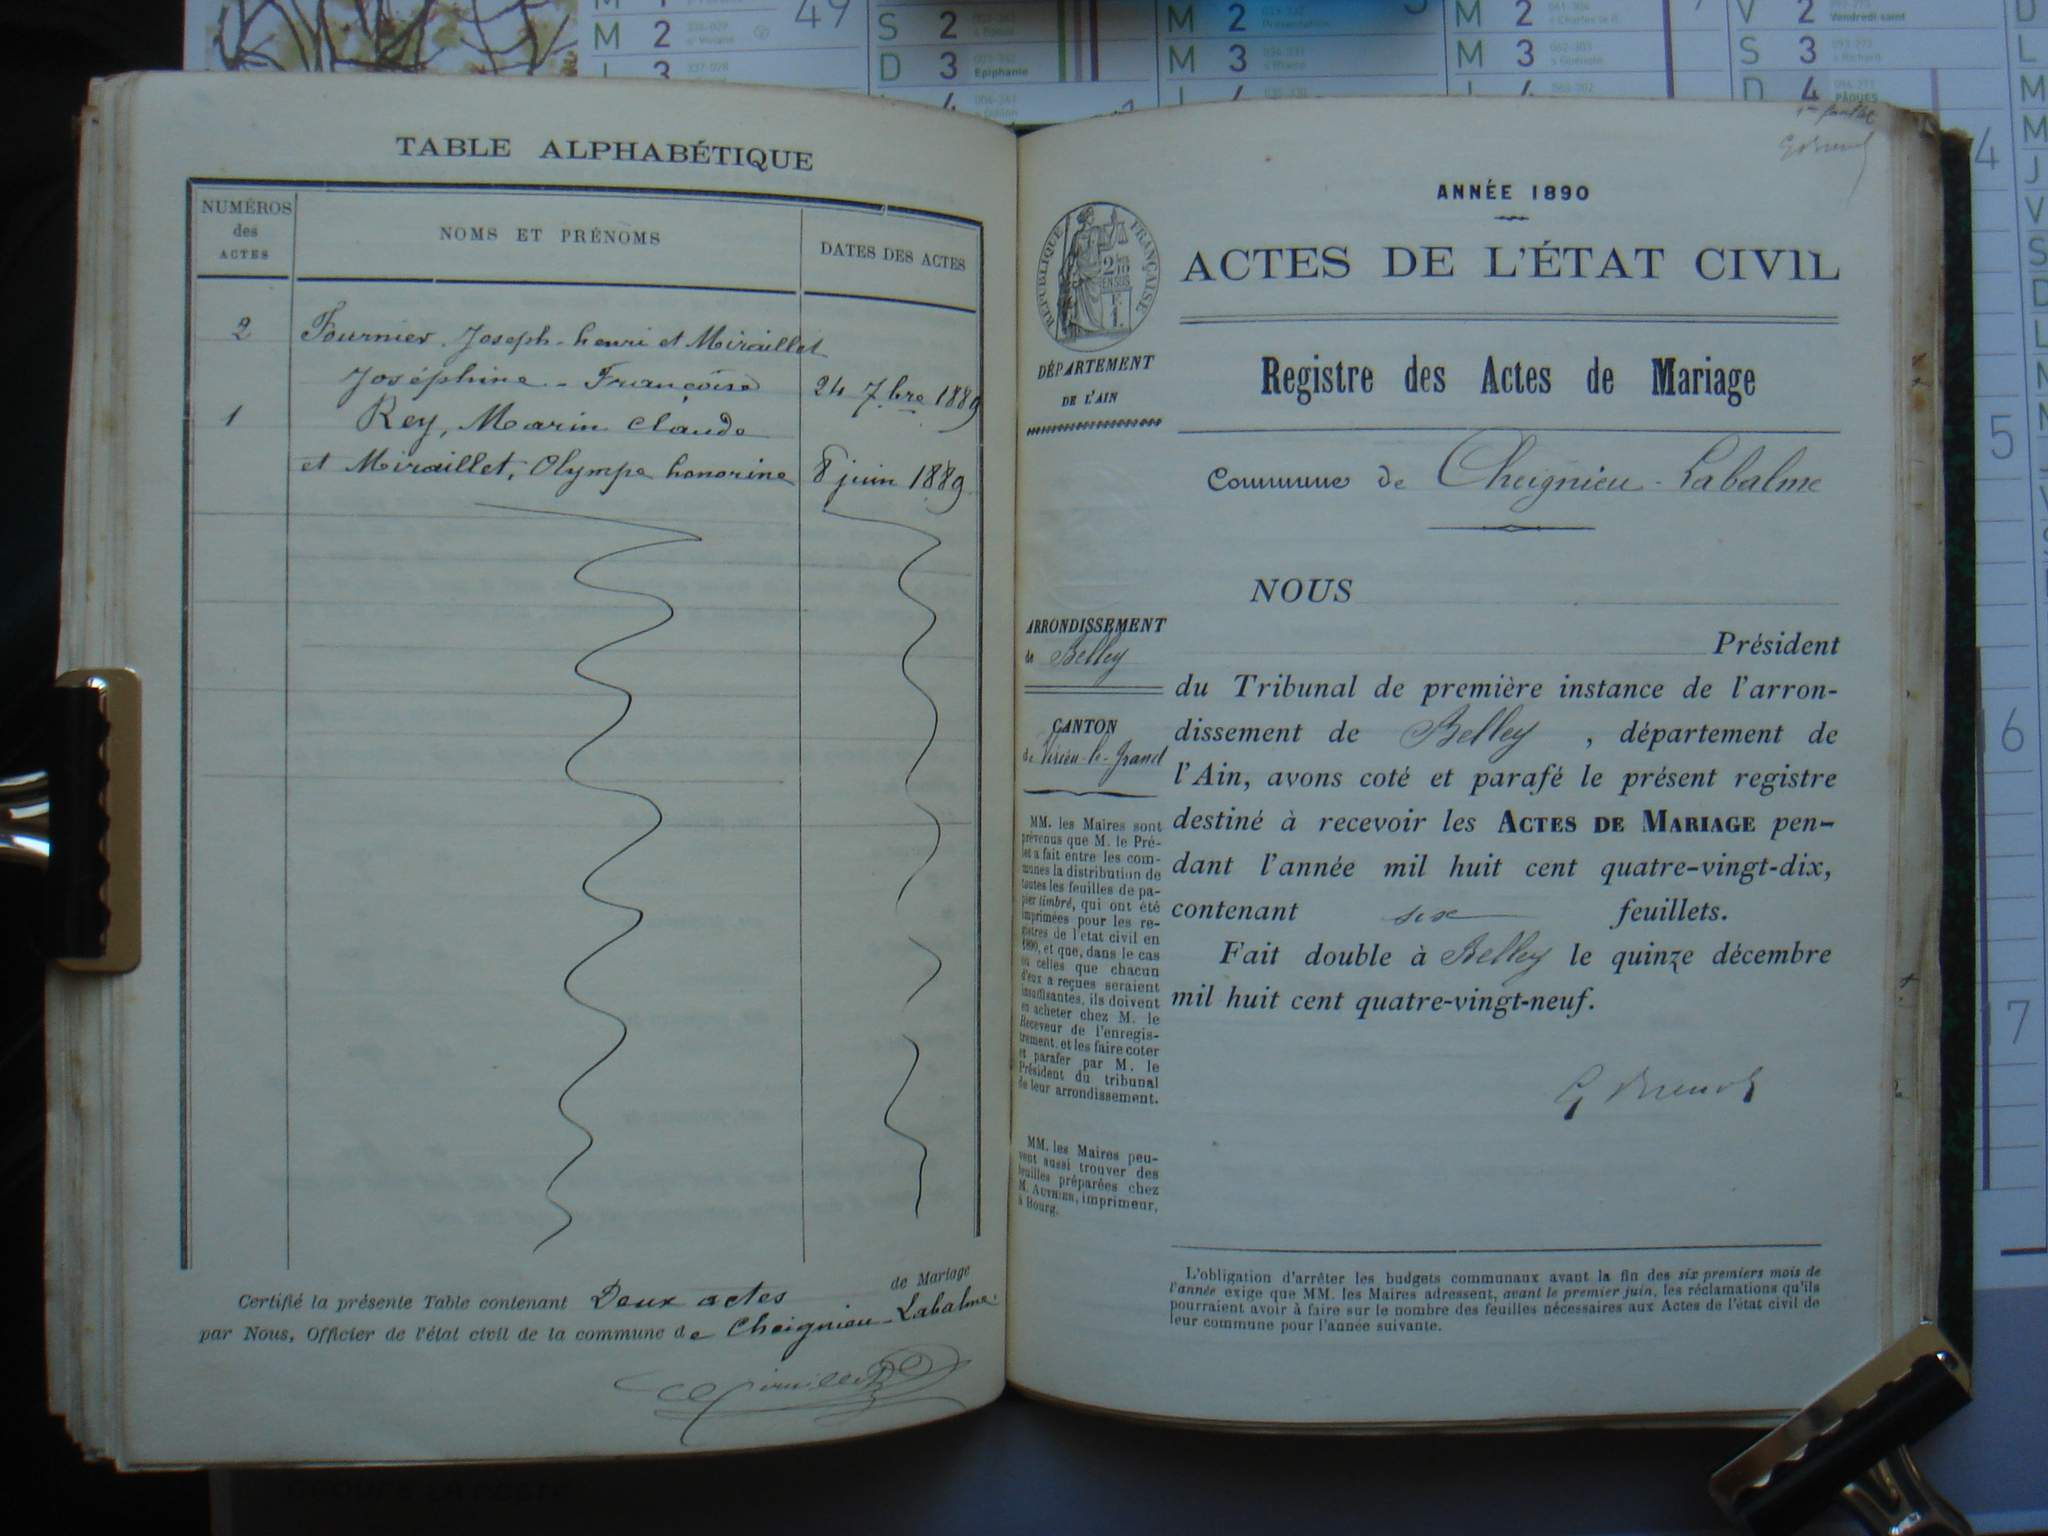 TABLE ALPHABÉTIQUE
NUMÉROS
des
ACTES
NOMS ET PRÉNOMS
DATES DES ACTES
2
Fournier, Joseph-henri et Miraillet
Joséphine-Françoise
24 7bre 1889
1
Rey, Marin Claude
et Miraillet, Olympe honorine
8 juin 1889
Certifié la présente Table contenant Deux actes de Mariage
par Nous, Officier de l'état civil de la commune de Cheignieu-Labalme.
ANNÉE 1890
RÉPUBLIQUE FRANÇAISE
ACTES DE L'ÉTAT CIVIL
DÉPARTEMENT
DE L'AIN
Registre des Actes de Mariage
Commune de Cheignieu-Labalme
ARRONDISSEMENT
de Belley
CANTON
de Virieu-le-Grand
MM. les Maires sont
prévenus que M. le Pré-
fet a fait entre les com-
munes la distribution de
toutes les feuilles de pa-
pier timbré, qui ont été
imprimées pour les re-
gistres de l'état civil en
1890, et que, dans le cas
où celles que chacun
d'eux a reçues seraient
insuffisantes, ils doivent
en acheter chez M. le
Receveur de l'enregis-
trement, et les faire coter
et parafer par M. le
Président du tribunal
de leur arrondissement.
MM. les Maires peu-
vent aussi trouver des
feuilles préparées chez
M. AUTHIER, imprimeur,
à Bourg.
NOUS
Président
du Tribunal de première instance de l'arron-
dissement de Belley, département de
l'Ain, avons coté et parafé le présent registre
destiné à recevoir les ACTES DE MARIAGE pen-
dant l'année mil huit cent quatre-vingt-dix,
contenant six feuillets.
Fait double à Belley le quinze décembre
mil huit cent quatre-vingt-neuf.
L'obligation d'arrêter les budgets communaux avant la fin des six premiers mois de
l'année exige que MM. les Maires adressent, avant le premier juin, les réclamations qu'ils
pourraient avoir à faire sur le nombre des feuilles nécessaires aux Actes de l'état civil de
leur commune pour l'année suivante.